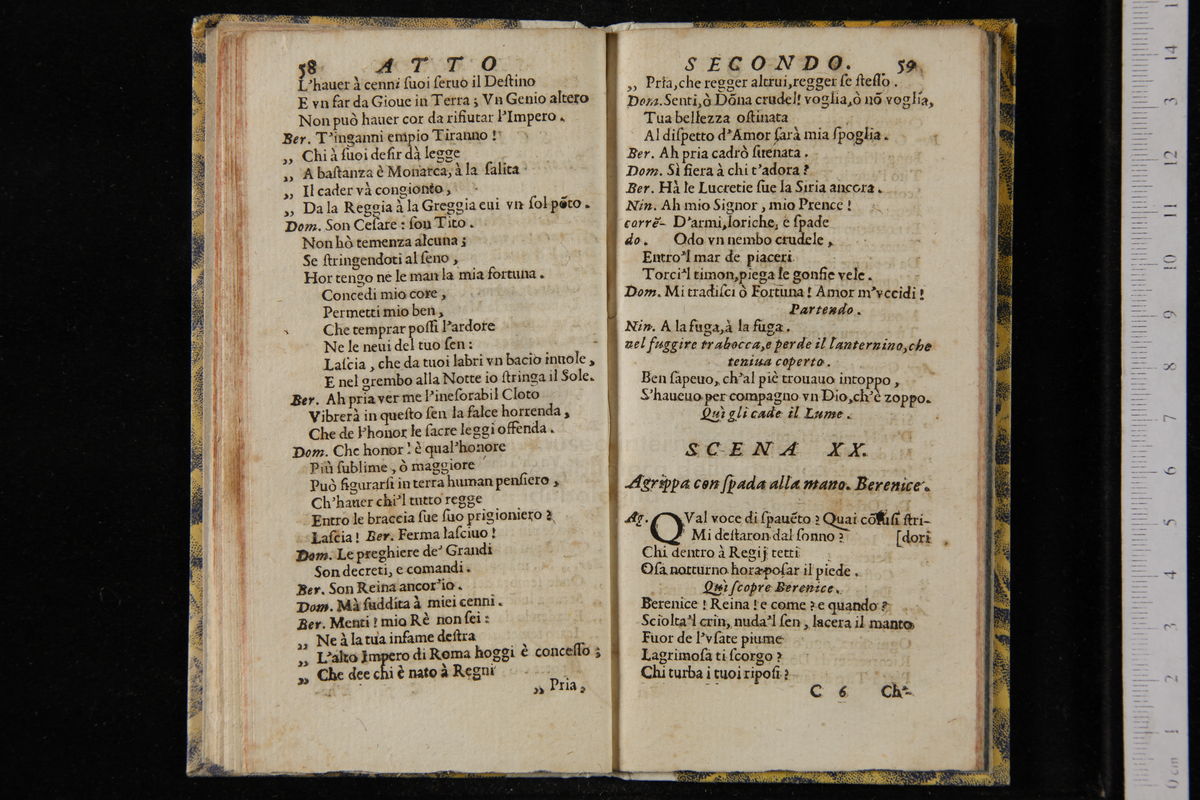 58 ATTO
L'hauer à cenni ſuoi ſeruo il Deſtino
E vn far da Gioue in Terra ; Vn Genio altero
Non può hauer cor da rifiutar l'Impero .
Ber. T'inganni empio Tiranno !
„ Chi à ſuoi deſir dà legge
„ A baſtanza è Monarca, à la ſalita
„ Il cader và congionto ,
„ Da la Reggia à la Greggia eui vn ſol põto .
Dom. Son Ceſare : ſon Tito .
Non hò temenza alcuna ;
Se ſtringendoti al ſeno ,
Hor tengo ne le man la mia fortuna .
Concedi mio core ,
Permetti mio ben ,
Che temprar poſſi l'ardore
Ne le neui del tuo ſen :
Laſcia , che da tuoi labri vn bacio inuole ,
E nel grembo alla Notte io ſtringa il Sole.
Ber. Ah pria ver me l'ineſorabil Cloto
Vibrerà in queſto ſen la falce horrenda ,
Che de l'honor le ſacre leggi offenda .
Dom. Che honor ! è qual'honore
Più ſublime , ò maggiore
Può figurarſi in terra human penſiero ,
Ch'hauer chi'l tutto regge
Entro le braccia ſue ſuo prigioniero ?
Laſcia ! Ber. Ferma laſciuo !
Dom. Le preghiere de' Grandi
Son decreti, e comandi .
Ber. Son Reina ancor'io .
Dom. Mà ſuddita à miei cenni .
Ber. Menti ! mio Rè non ſei :
„ Ne à la tua infame deſtra
„ L'alto Impero di Roma hoggi è conceſſo ;
„ Che dee chi è nato à Regni
„ Pria,
SECONDO. 59
„ Pria, che regger altrui, regger ſe ſteſſo .
Dom. Senti, ò Dõna crudel! voglia, ò nõ voglia,
Tua bellezza oſtinata
Al diſpetto d'Amor ſarà mia ſpoglia .
Ber. Ah pria cadrò ſuenata .
Dom. Sì fiera à chi t'adora ?
Ber. Hà le Lucretie ſue la Siria ancora .
Nin. Ah mio Signor , mio Prence !
corrẽ- D'armi, loriche, e ſpade
do. Odo vn nembo crudele ,
Entro'l mar de piaceri
Torci'l timon, piega le gonfie vele .
Dom. Mi tradiſci ò Fortuna ! Amor m'vccidi !
Partendo .
Nin. A la fuga, à la fuga .
nel fuggire trabocca, e perde il lanternino, che
teniua coperto .
Ben ſapeuo, ch'al piè trouauo intoppo ,
S'haueuo per compagno vn Dio, ch'è zoppo.
Quì gli cade il Lume .
SCENA XX.
Agrippa con ſpada alla mano. Berenice .
Ag. QVal voce di ſpauẽto ? Quai cõfuſi ſtri-
Mi deſtaron dal ſonno ? [dori
Chi dentro à Regij tetti
Oſa notturno hora poſar il piede .
Quì ſcopre Berenice .
Berenice ! Reina ! e come ? e quando ?
Sciolta'l crin, nuda'l ſen , lacera il manto
Fuor de l'vſate piume
Lagrimoſa ti ſcorgo ?
Chi turba i tuoi ripoſi ?
C 6 Ch'